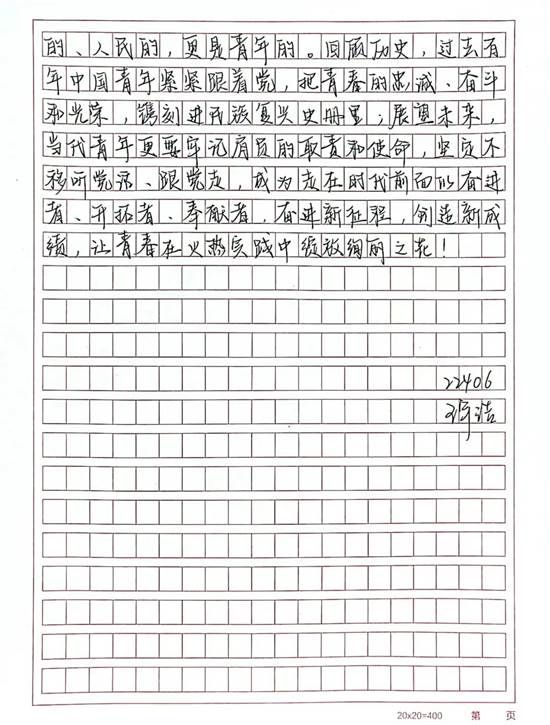 的、人民的，更是青年的。回顾历史，过去百
年中国青年紧紧跟着党，把青春的忠诚、奋斗
和光荣，镌刻进民族复兴史册里；展望未来，
当代青年更要牢记肩负的职责和使命，坚定不
移听党话、跟党走，成为走在时代前面的奋进
者、开拓者、奉献者，奋进新征程，创造新成
绩，让青春在火热实践中绽放绚丽之花！
22406
浩
20x20=400 第 页